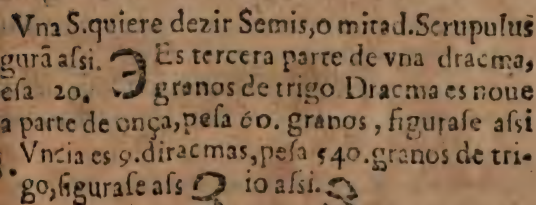 Vna S.quiere dezir Semis,o mitad.Scrupulus
gurã aſsi. ℈ Es tercera parte de vna dracma,
eſa 20. granos de trigo Dracma es noue
a parte de onça,peſa 60. granos , figuraſe aſsi
Vncia es 9.diracmas,peſa 540.granos de tri-
go,figuraſe aſs io aſsi.